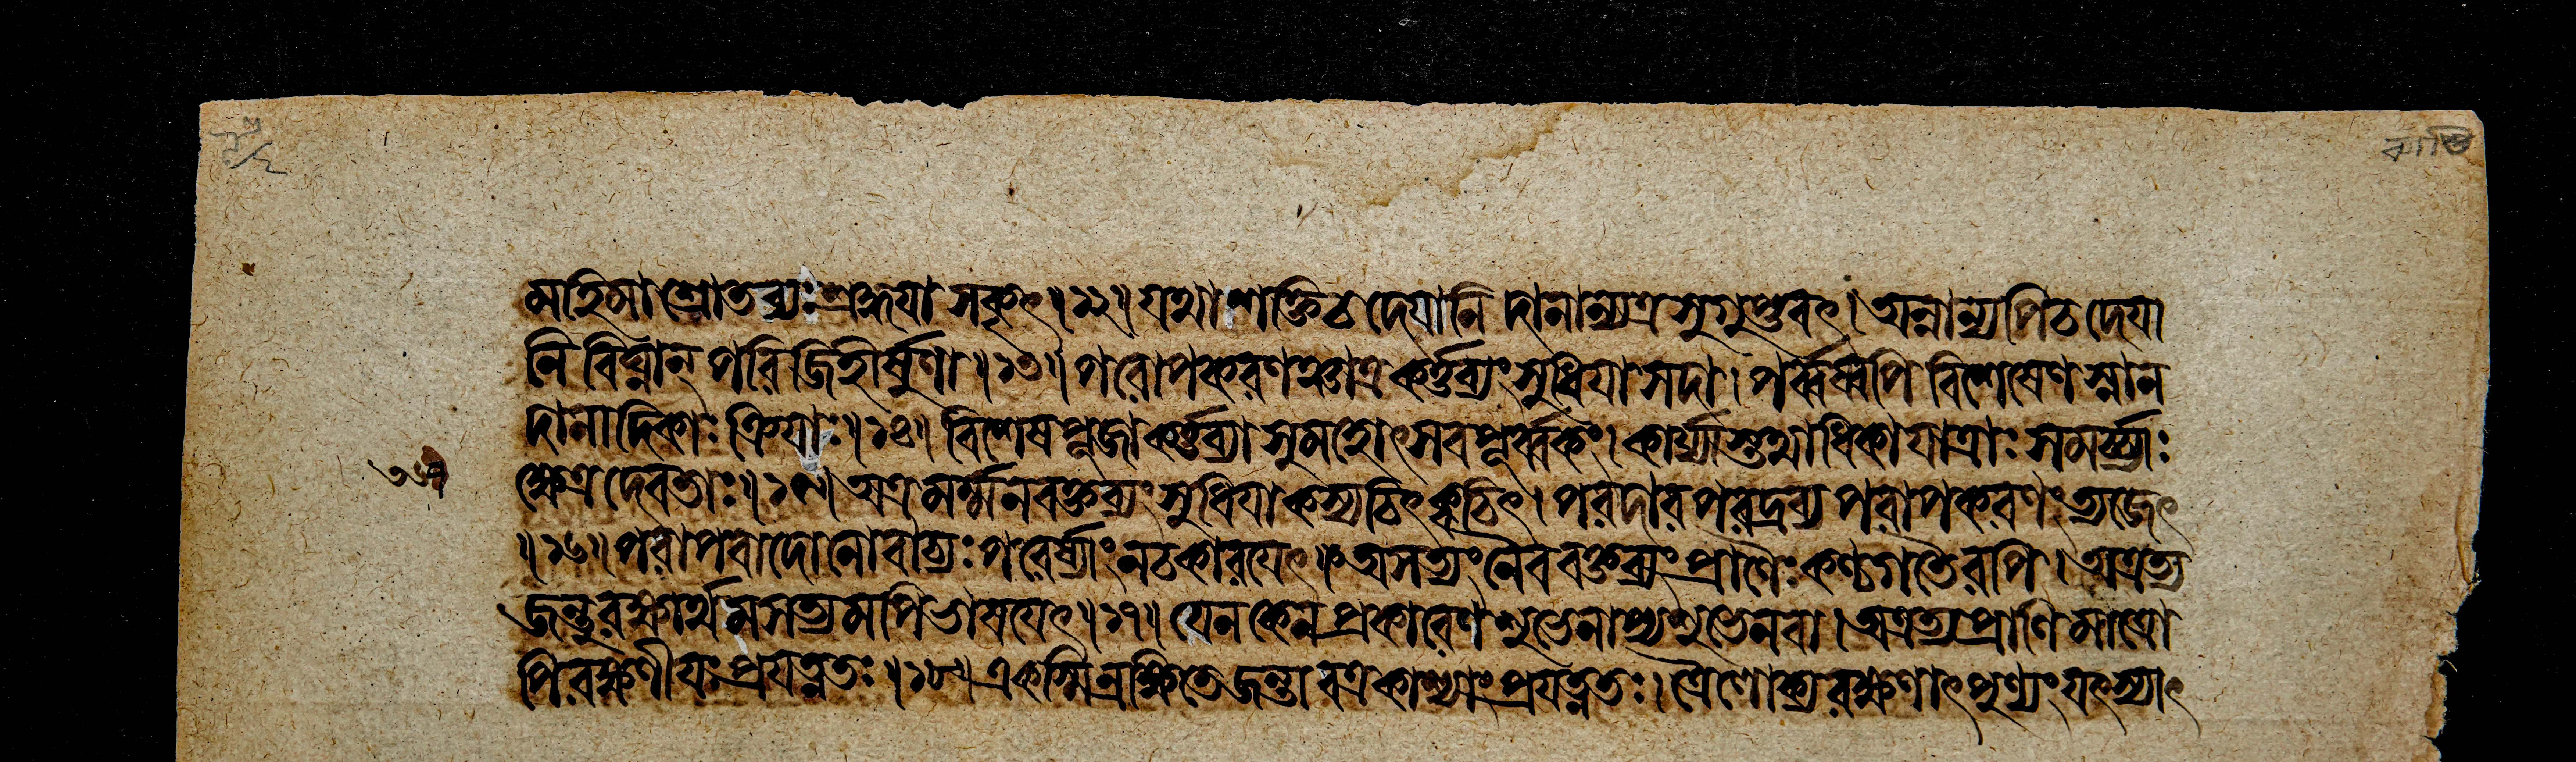 মহিমা শ্রোতব্যঃ শ্রদ্ধয়া সকৃৎ ॥১২॥ যথাশক্তি চ দেয়ানি দানান্যত্র সুগুপ্তবৎ । অন্নান্যপি চ দেয়া
নি বিঘ্নান্ পরিজিহীর্ষুণা ॥১৩॥ পরোপকরণঞ্চাত্র কর্ত্তব্যং সুধিয়া সদা । পর্ব্বস্বপি বিশেষেণ স্নান
দানাদিকাঃ ক্রিয়াঃ ॥১৪॥ বিশেষপূজা কর্ত্তব্যা সুমহোৎসবপূর্ব্বকং । কার্য্যাস্তথাধিকা যাত্রাঃ সমর্চ্চ্যাঃ
ক্ষেত্রদেবতাঃ ॥১৫॥ অত্র মর্ম্ম ন বক্তব্যং সুধিয়া কস্যচিৎ ক্বচিৎ । পরদারপরদ্রব্যপরাপকরণং ত্যজেৎ
॥১৬॥ পরাপবাদো নো বাচ্যঃ পরের্ষ্যাং ন চ কারয়েৎ । অসত্যং নৈব বক্তব্যং প্রাণৈঃ কণ্ঠগতৈরপি । অত্রত্য
জন্তুরক্ষার্থমসত্যমপি ভাষয়েৎ ॥১৭॥ যেন কেন প্রকারেণ শুভেনাপ্যশুভেন বা । অত্রত্যপ্রাণিমাত্রো
পি রক্ষণীয়ঃ প্রযত্নতঃ ॥১৮॥ একস্মিন্রক্ষিতে জন্তাবত্র কাশ্যাং প্রযত্নতঃ । ত্রৈলোক্যরক্ষণাৎ পুণ্যং যৎ স্যাৎ